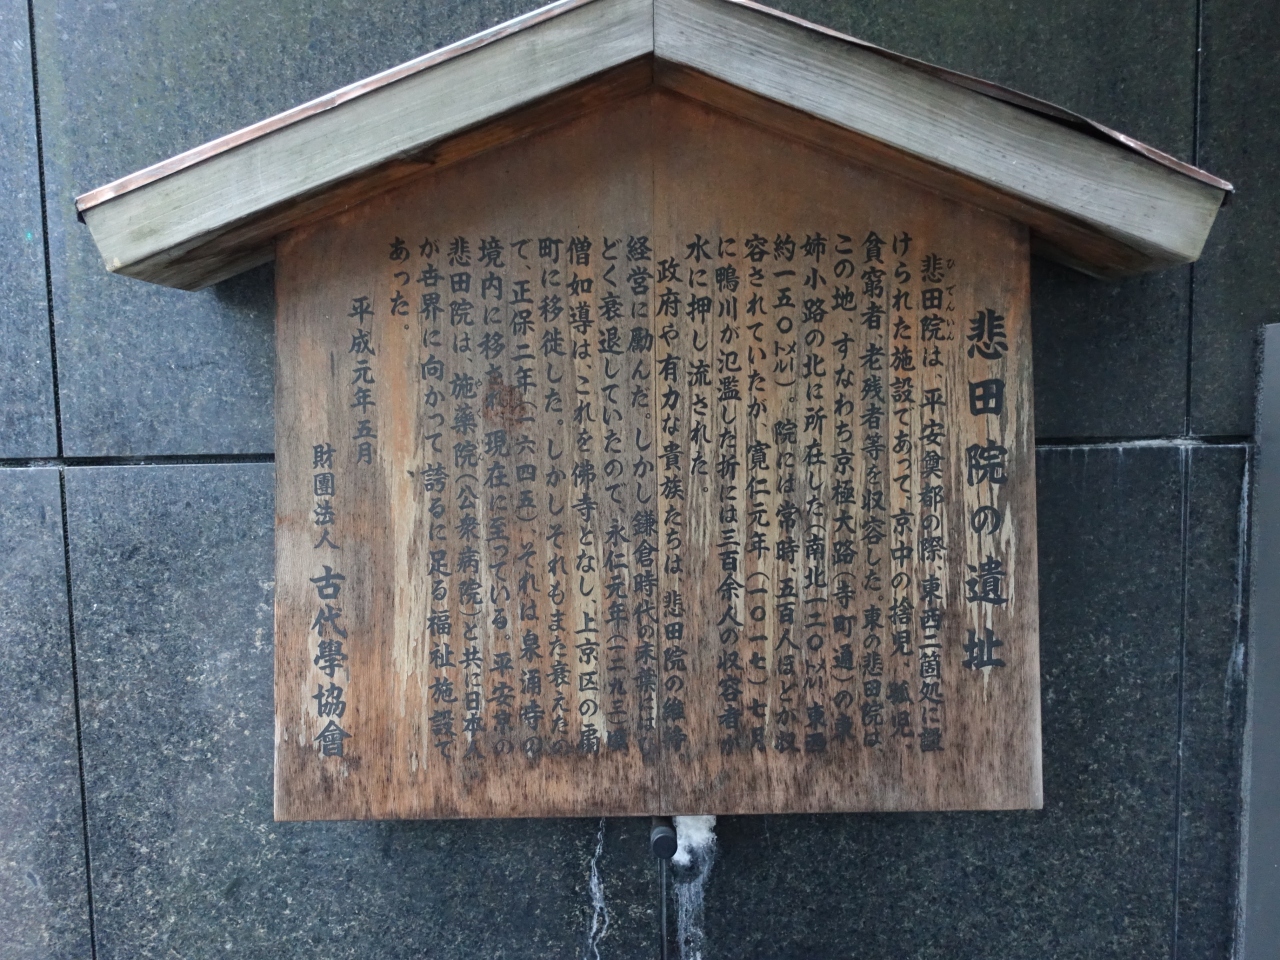 悲田院の遺址
悲田院は、平安奠都の際、東西二箇処に設
けられた施設であって、京中の捨児、孤児、
貧窮者、老残者等を収容した。東の悲田院は
この地、すなわち京極大路(寺町通)の東
姉小路の北に所在した(南北一二〇㍍、東西
約一五〇㍍)。院には常時五百人ほどが収
容されていたが、寛仁元年(一〇一七)七月
に鴨川が氾濫した折には三百余人の収容者が
水に押し流された。
政府や有力な貴族たちは、悲田院の維持
経営に励んだ。しかし鎌倉時代の末葉にはひ
どく衰退していたので、永仁元年(一二九三)
僧如導は、これを佛寺となし、上京区の扇
町に移徙した。しかしそれもまた衰えたの
で、正保二年(一六四五)それは泉涌寺の
境内に移され、現在に至っている。平安京の
悲田院は、施薬院(公衆病院)と共に日本人
が世界に向かって誇るに足る福祉施設で
あった。
平成元年五月
財團法人 古代學協會